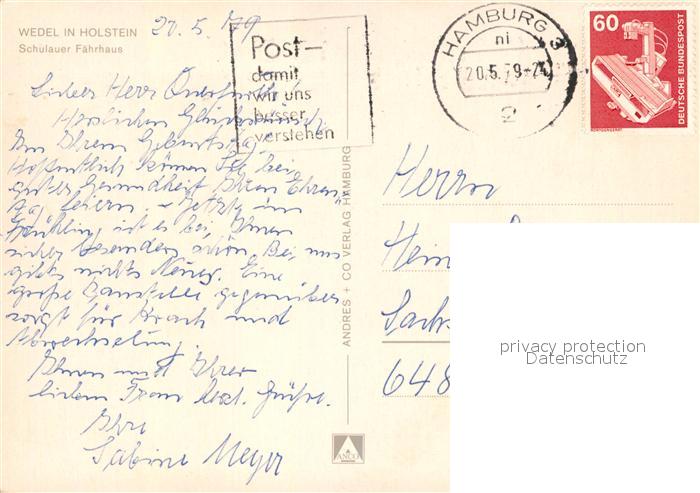 WEDEL IN HOLSTEIN
Schulauer Fährhaus
20.5.79
Post-
damit
wir uns
besser
verstehen
HAMBURG 3
ni
20.5.79-24
2
60
DEUTSCHE BUNDESPOST
RÖNTGENGERÄT
Lieber Herr
Herzlichen Glückwunsch
Ihrem Geburtstag.
Hoffentlich können Sie bei
guter Gesundheit Ihren Ehren-
tag feiern. - Jetzt im
Frühling ist es bei Ihnen
sicher besonders schön. Bei uns
gibts nichts Neues. Eine
große Baustelle gegenüber
sorgt für Krach und
Abwechselung.
Ihnen und Ihrer
lieben Frau herzl. Grüße.
Ihre
Sabine Meyer
ANDRES + CO VERLAG HAMBURG
ANCO
Herrn
Hein
Sachs
648
privacy protection
Datenschutz